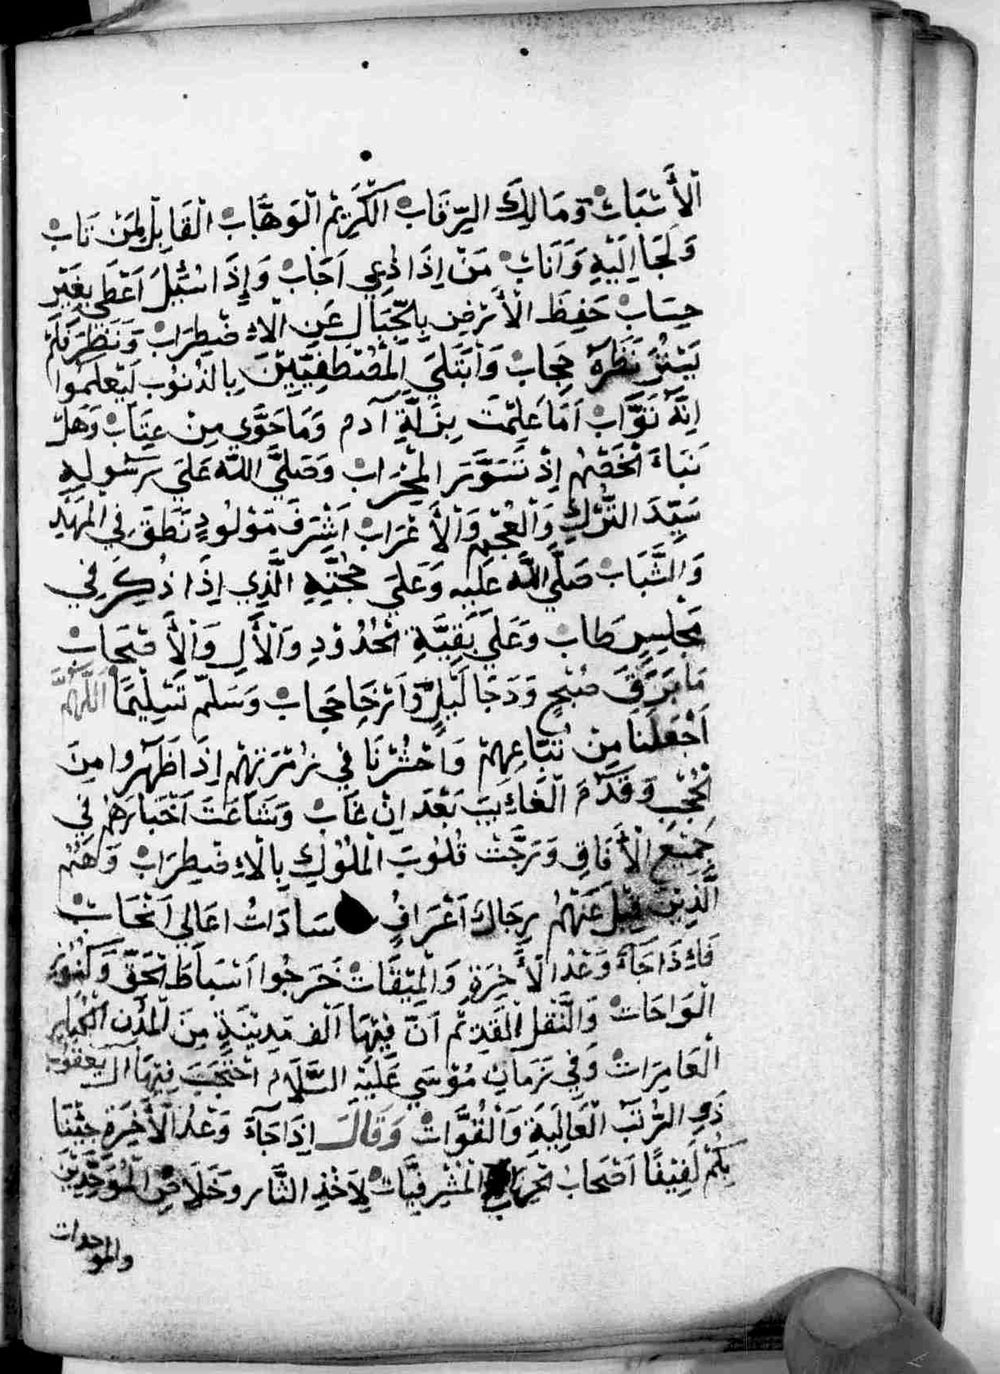 الْأَسْبَابْ وَمَالِكَ الرِّقَابْ الْكَرِيْمِ الْوَهَّابْ الْقَابِلْ لِمَنْ تَابْ
وَلَجَا اِلَيْهِ وَاَنَابْ مَنْ اِذَا دُعِي اَجَابْ وَاِذَا سُئِلَ اَعْطَى بِغَيْرِ
حِسَابْ حَفِظَ الْأَرْضِ بِالْجِبَالِ عَنِ الْاِضْطِرَابْ وَنَظَرَ فَلَمْ
يَسْتُرْ نَظَرَهُ حِجَابْ وَابْتَلَي الْمُصْطَفِيِّيْنَ بِالذُنُوْبِ لِيَعْلَمُوا
اِنَّهُ تَوَّابْ اَمَا عَلِمْتَ بِزَلَّةِ آدم وَمَا حَوَّي مِنْ عِتَابْ وَهَلْ
نَبَاءَ الْخَصْمِ اِذْ تَسَوَّرَ الْمِحْرَابْ وَصَلَّي اللّه عَلَي رَسُولِهِ
سَيِّدَ التُّرْكِ وَالْعُجْمِ وَالْأَعْرَابْ اَشْرَفَ مَوْلُودٍ نَطَقَ فِي الْمَهْدِ
وَالشَّبَابْ صَلَّي اللّه عَلَيْهِ وَعَلَي مُحِبِّيْهِ الَّذِي اِذَا ذُكِرَ فِي
مَجْلِسِ طَابْ وَعَلَي بَقِيَّةِ الْحُدُوْدِ وَالْأَلِ وَالْأَصْحَابْ
مَا بَرَقَ صُبْحٍ وَدَجَا لَيْلٍ وَاَرْخَا حِجَابْ وَسَلِّمْ تَسْلِيْمًا اَللّهُمَّ
اَجْعَلْنَا مِنْ تُبَّاعِهِمْ وَاحْشُرْنَا فِي زُمْرَتِهِمْ اِذَا ظَهَرُوا مِنَ
الْحُجْبِ وَقَدَّمَ الْغَائِبَ بَعْدَ اِنْ غَابْ وَشَاعَتْ اَخْبَارَهُمْ فِي
جَمِيْعِ الْأَفَاقِ وَرَجَّتْ قُلُوْبَ الْمُلُوْكِ بِالْاِضْطِرَابْ وَهُمُ
الَّذِيْنَ قِيْلَ عَنْهُمْ رِجَالٌ اَعْرَافٍ سَادَاتُ اعَالِي اَنْجَابْ
فَاِذَا جَآءَ وَعْدُ الْأَخِرَةِ وَالْمِيْقَاتْ خَرَجُوا اَسْبَاطَ الْحَقّ وَكُنُوْزِ
الْوَاحَاتْ وَالنَّقْلِ الْقَدِيْمِ اَنَّ فِيْهَا اَلْف مَدِيْنَةٍ مِنَ الْمُدُنِ الْكِبَارِ
الْعَامِرَاتْ وَفِي زَمَانِ مُوْسَي عَلَيْهِ السَّلَامُ احْتَجَبَ فِيْهَا ال يَعْقُوْبْ
ذَوِي الرُّتَبْ الْعَالِيَةِ وَالْقُوَّاتْ وَقَالَ اِذَا جَآءَ وَعْدُ الْأَخِرَةِ جِئْنَا
بِكُمْ لَفِيْفًا اَصْحَابُ الْمَشْرِفِيَّاتْ لِاَخْذِ الثَّار وَخَلَاصِ الْمُوَحِّدِيْنَ
والموحدات